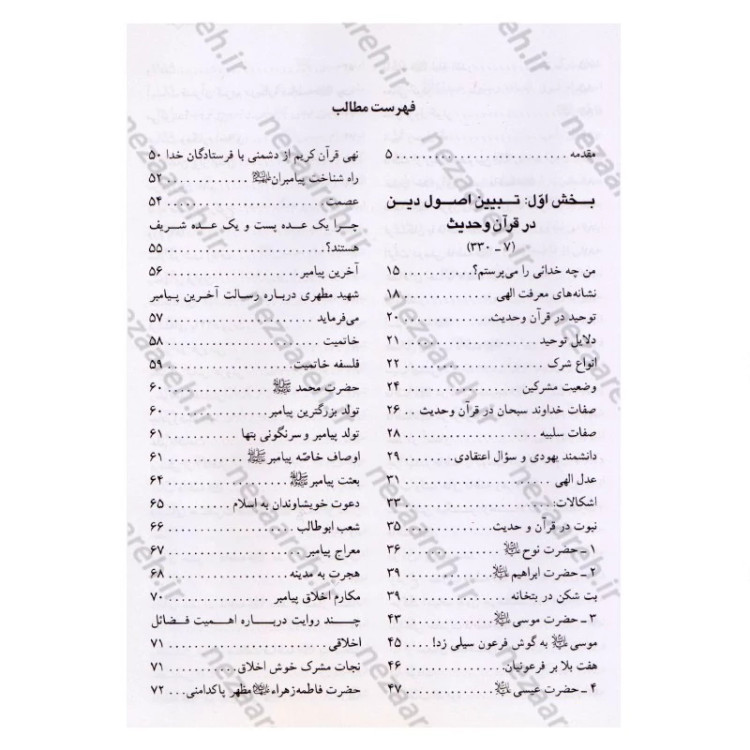 فهرست مطالب
مقدمه ........................ ۵
بخش اوّل: تبیین اصول دین
در قرآن و حدیث
(۷ ـ ۳۳۰)
من چه خدائی را می‌پرستم؟ .......... ۱۵
نشانه‌های معرفت الهی ............ ۱۸
توحید در قرآن وحدیث ............ ۲۰
دلایل توحید .................. ۲۱
انواع شرک ................... ۲۲
وضعیت مشرکین ............... ۲۴
صفات خداوند سبحان در قرآن وحدیث .. ۲۶
صفات سلبیه .................. ۲۸
دانشمند یهودی و سؤال اعتقادی ..... ۲۹
عدل الهی ..................... ۳۱
اشکالات: .................... ۳۳
نبوت در قرآن و حدیث ............ ۳۵
۱ ـ حضرت نوح ﷺ ............. ۳۶
۲ ـ حضرت ابراهیم ﷺ ........... ۳۹
بت شکن در بتخانه .............. ۳۹
۳ ـ حضرت موسی ﷺ ........... ۴۳
موسی ﷺ به گوش فرعون سیلی زد! .... ۴۵
هفت بلا بر فرعونیان ............. ۴۶
۴ ـ حضرت عیسی ﷺ ........... ۴۷
نهی قرآن کریم از دشمنی با فرستادگان خدا ۵۰
راه شناخت پیامبران ﷺ .......... ۵۲
عصمت ...................... ۵۴
چرا یک عده پست و یک عده شریف
هستند؟ ...................... ۵۵
آخرین پیامبر .................. ۵۶
شهید مطهری درباره رسالت آخرین پیامبر
می‌فرماید .................... ۵۷
خاتمیت ..................... ۵۸
فلسفه خاتمیت ................. ۵۹
حضرت محمد ﷺ ............. ۶۰
تولد بزرگترین پیامبر ............. ۶۰
تولد پیامبر و سرنگونی بتها ......... ۶۱
اوصاف خاصّه پیامبر ﷺ ......... ۶۱
بعثت پیامبر ﷺ ............... ۶۴
دعوت خویشاوندان به اسلام ........ ۶۵
شعب ابوطالب ................. ۶۶
معراج پیامبر .................. ۶۷
هجرت به مدینه ................ ۶۸
مکارم اخلاق پیامبر .............. ۷۰
چند روایت درباره اهمیت فضائل
اخلاقی ..................... ۷۱
نجات مشرک خوش اخلاق ......... ۷۱
حضرت فاطمه زهراء ﷺ مظهر پاکدامنی ... ۷۲
nezaareh.ir